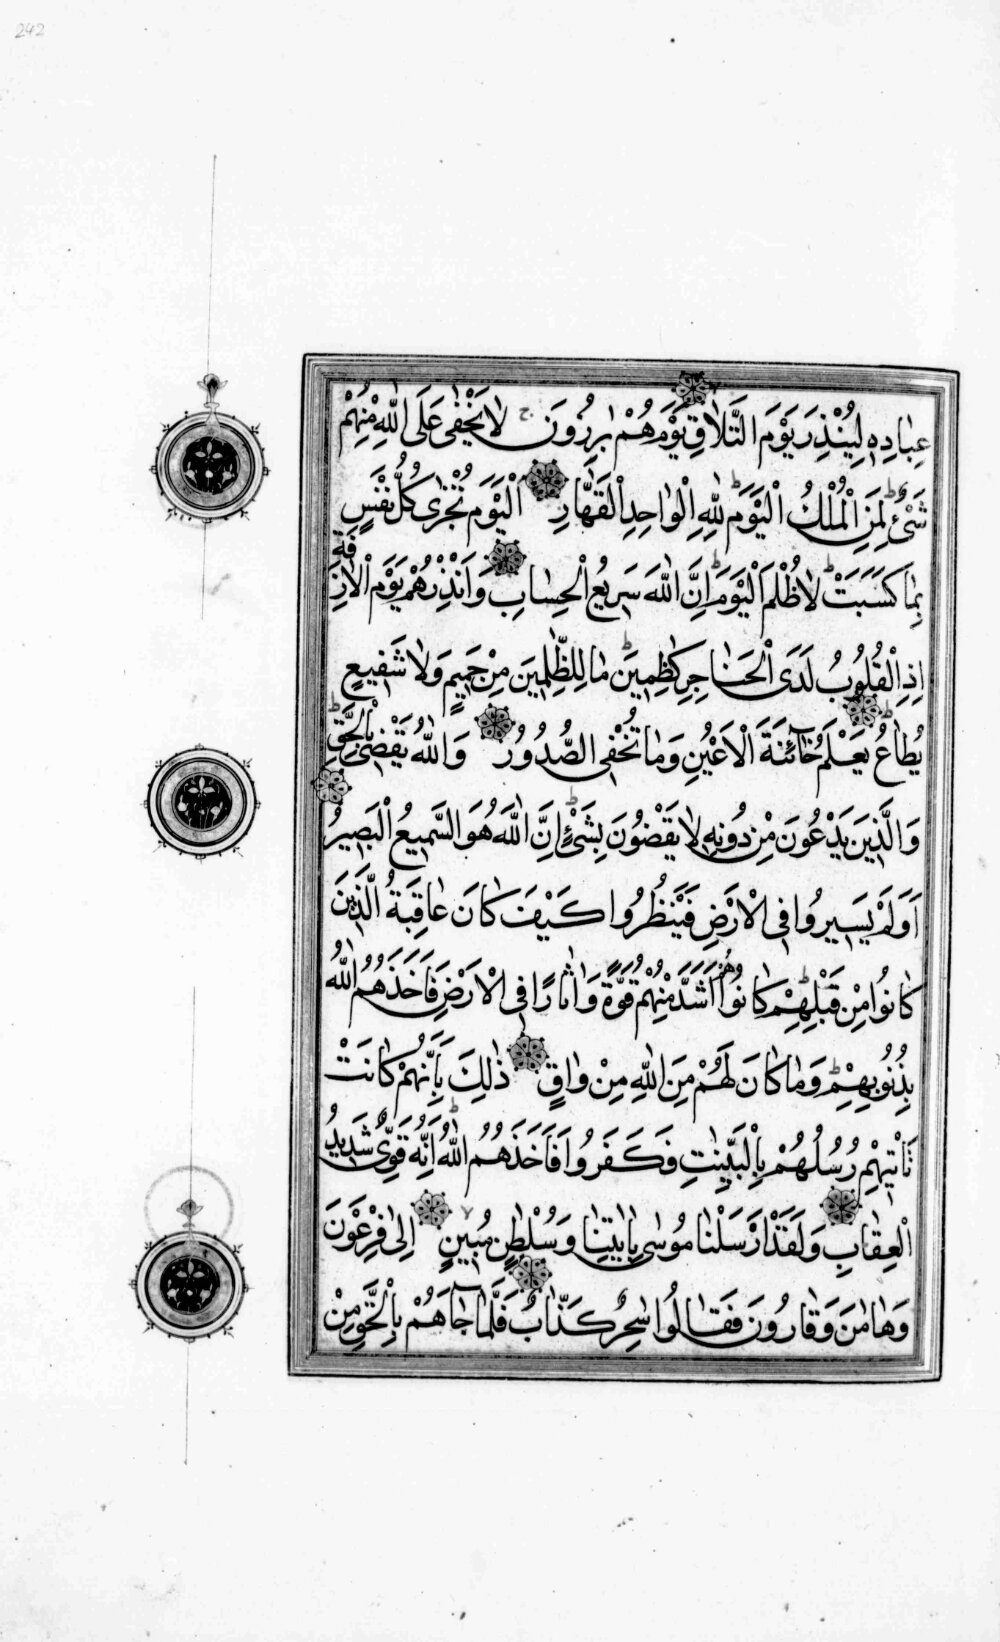 242
عِبَادِهِ لِيُنْذِرَ يَوْمَ التَّلَاقِ يَوْمَ هُمْ بَارِزُونَ ج لَا يَخْفٰى عَلَى اللّٰهِ مِنْهُمْ
شَىْءٌ ط لِمَنِ الْمُلْكُ الْيَوْمَ ط لِلّٰهِ الْوَاحِدِ الْقَهَّارِ اَلْيَوْمَ تُجْزٰى كُلُّ نَفْسٍ
بِمَا كَسَبَتْ ط لَا ظُلْمَ الْيَوْمَ ط اِنَّ اللّٰهَ سَرِيعُ الْحِسَابِ وَاَنْذِرْهُمْ يَوْمَ الْاٰزِفَةِ
اِذِ الْقُلُوبُ لَدَى الْحَنَاجِرِ كٰظِمِينَ ط مَا لِلظّٰلِمِينَ مِنْ حَمِيمٍ وَلَا شَفِيعٍ
يُطَاعُ ط يَعْلَمُ خَآئِنَةَ الْاَعْيُنِ وَمَا تُخْفِى الصُّدُورُ وَاللّٰهُ يَقْضِى بِالْحَقِّ ط
وَالَّذِينَ يَدْعُونَ مِنْ دُونِهِ لَا يَقْضُونَ بِشَىْءٍ ط اِنَّ اللّٰهَ هُوَ السَّمِيعُ الْبَصِيرُ
اَوَلَمْ يَسِيرُوا فِى الْاَرْضِ فَيَنْظُرُوا كَيْفَ كَانَ عَاقِبَةُ الَّذِينَ
كَانُوا مِنْ قَبْلِهِمْ ط كَانُوا هُمْ اَشَدَّ مِنْهُمْ قُوَّةً وَاٰثَارًا فِى الْاَرْضِ فَاَخَذَهُمُ اللّٰهُ
بِذُنُوبِهِمْ ط وَمَا كَانَ لَهُمْ مِنَ اللّٰهِ مِنْ وَاقٍ ذٰلِكَ بِاَنَّهُمْ كَانَتْ
تَاْتِيهِمْ رُسُلُهُمْ بِالْبَيِّنٰتِ فَكَفَرُوا فَاَخَذَهُمُ اللّٰهُ ط اِنَّهُ قَوِىٌّ شَدِيدُ
الْعِقَابِ وَلَقَدْ اَرْسَلْنَا مُوسٰى بِاٰيٰتِنَا وَسُلْطٰنٍ مُبِينٍ لا اِلٰى فِرْعَوْنَ
وَهَامٰنَ وَقَارُونَ فَقَالُوا سٰحِرٌ كَذَّابٌ فَلَمَّا جَآءَهُمْ بِالْحَقِّ مِنْ